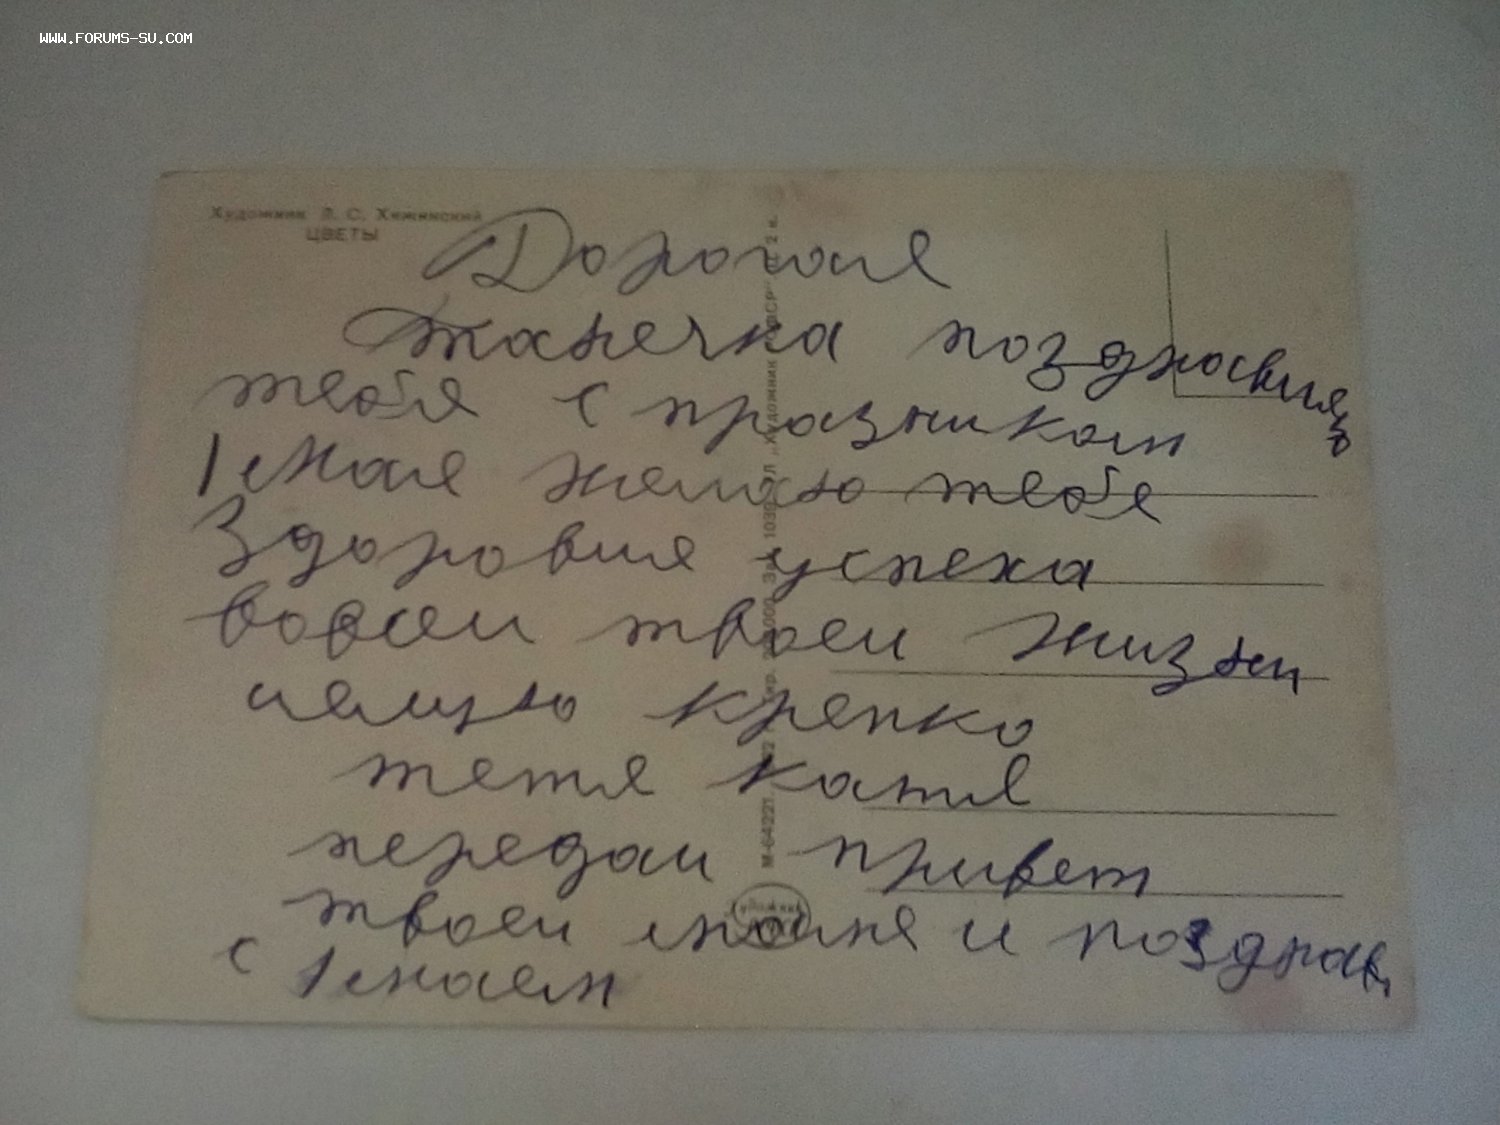 WWW.FORUMS-SU.COM
Художник Л. С. Хижинский
ЦВЕТЫ
Дорогая
танечка поздровляю
тебя с празником
1 мая желаю тебя
Здоровия успеха
вовсеи твоеи жизни
целую крепко
тетя катя
передаи привет
твоеи маме и поздрав
с 1 маем